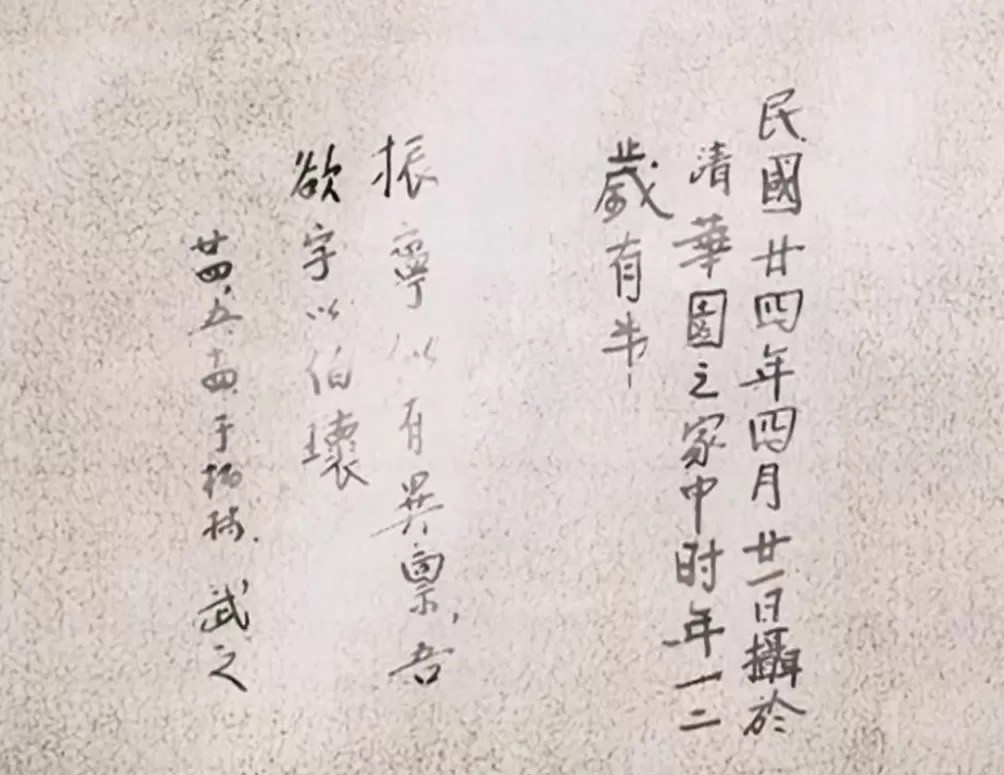 民國廿四年四月廿一日攝於
清華園之家中时年一二
歲有半
振寧似有異禀，吾
欲字以伯瓌
廿四、五、 于柏林 武之